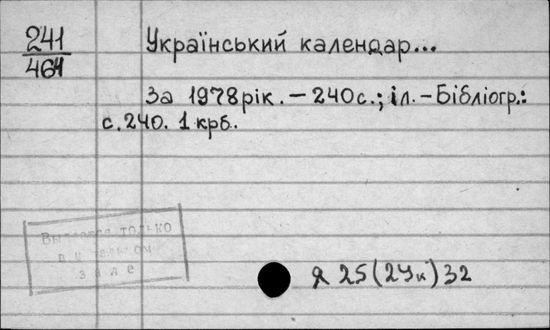 241
464
Український календар...
За 1978рік. – 240с.; іл. – Бібліогр.:
с.240. 1 крб.
Выдается только
в читальном
зале
Я 25(2Ук)32